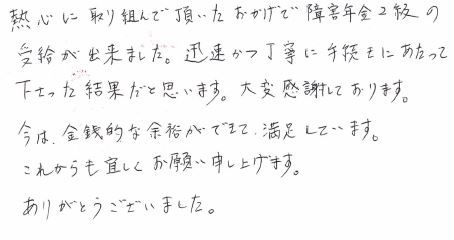 熱心に取り組んで頂いたおかげで障害年金2級の
受給が出来ました。迅速かつ丁寧に手続きにあたって
下さった結果だと思います。大変感謝しております。
今は、金銭的な余裕ができて、満足しています。
これからも宜しくお願い申し上げます。
ありがとうございました。